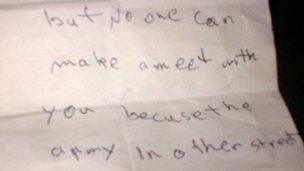 but No one can
make a meet with
you becuse the
army in other street